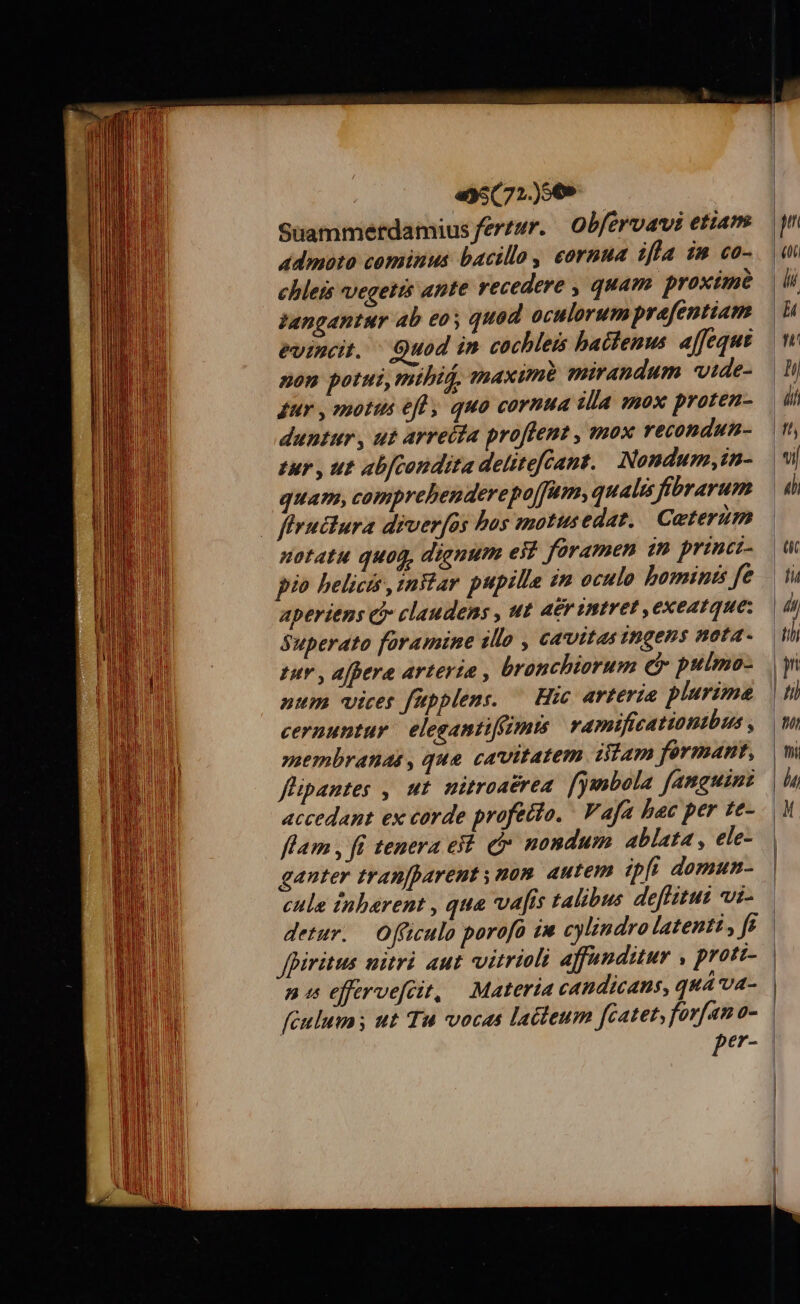 (72.)
Suammerdamius fertur. Obſervavi etiam
admoto cominus bacillo, cornua iſta in co-
chleis vegetis ante recedere, quam proximè
tangantur ab eo; quod oculorum præſentiam
evincit. Quod in cochleis hactenus aſſequi
non potui, mihiq́; maximè mirandum vide-
tur, motus eſt, quo cornua illa mox proten-
duntur, ut arrecta proſtent, mox recondun-
tur, ut abſcondita deliteſcant. Nondum, in-
quam, comprehendere poſſum, qualis fibrarum
ſtructura diverſos hos motus edat. Cæterùm
notatu quoq; dignum eſt foramen in princi-
pio helicis, inſtar pupillæ in oculo hominis ſe
aperiens & claudens, ut aër intret, exeatque:
Superato foramine illo, cavitas ingens nota-
tur, aſperæ arteriæ, bronchiorum & pulmo-
num vices ſupplens. Hic arteriæ plurimæ
cernuntur elegantiſſimis ramificationibus,
membranas, quæ cavitatem iſtam formant,
ſtipantes, ut nitroaërea ſymbola ſanguini
accedant ex corde profecto. Vaſa hæc per te-
ſtam, ſi tenera eſt & nondum ablata, ele-
ganter tranſparent; non autem ipſi domun-
culæ inhærent, quæ vaſis talibus deſtitui vi-
detur. Oſſiculo poroſo in cylindro latenti, ſi
ſpiritus nitri aut vitrioli affunditur, proti-
nus efferveſcit, Materia candicans, quâ va-
ſculum; ut Tu vocas lacteum ſcatet, forſan o-
per-